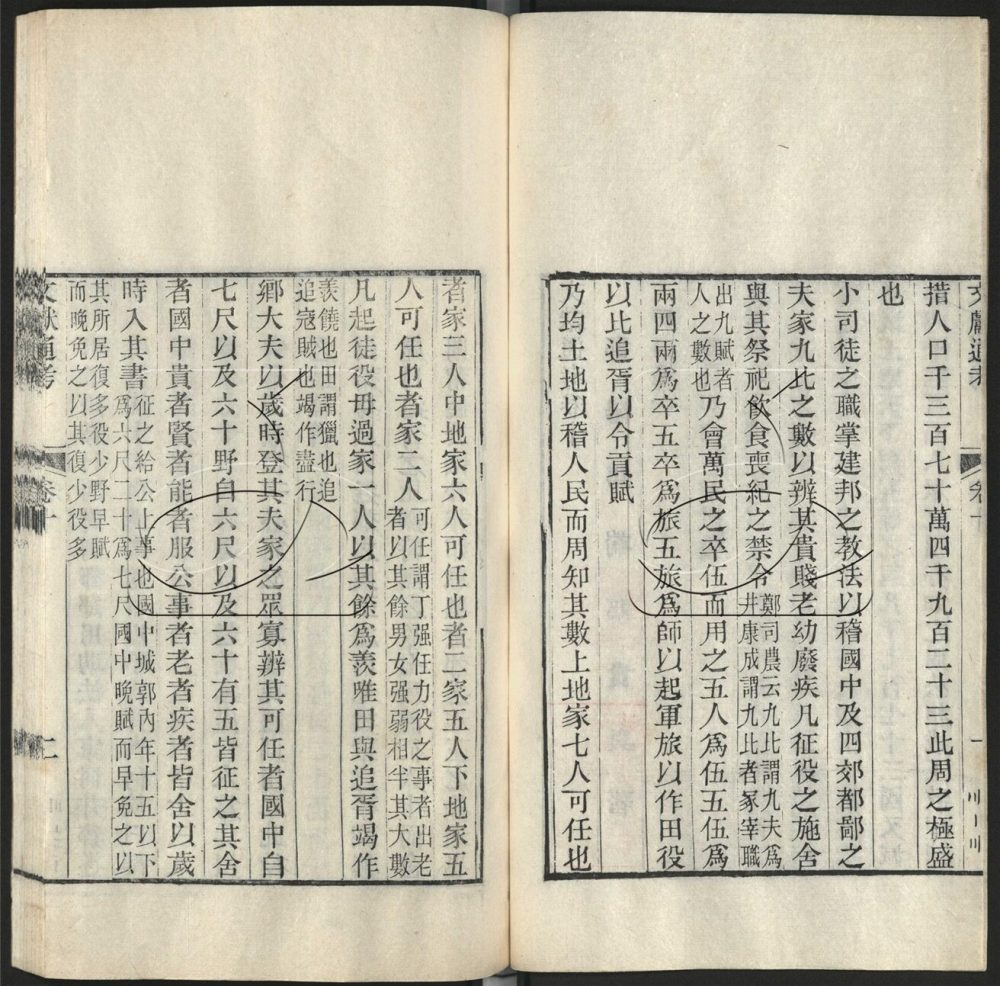 文獻通考 卷十 一
措人口千三百七十萬四千九百二十三此周之極盛
也
小司徒之職掌建邦之教法以稽國中及四郊都鄙之
夫家九比之數以辨其貴賤老幼廢疾凡征役之施舍
與其祭祀飲食喪紀之禁令鄭司農云九比謂九夫爲
井康成謂九比者冢宰職
出九賦者
人之數也乃會萬民之卒伍而用之五人爲伍五伍爲
兩四兩爲卒五卒爲旅五旅爲師以起軍旅以作田役
以比追胥以令貢賦
乃均土地以稽人民而周知其數上地家七人可任也
者家三人中地家六人可任也者二家五人下地家五
人可任也者家二人可任謂丁强任力役之事者出老
者以其餘男女强弱相半其大數
凡起徒役毋過家一人以其餘爲羡唯田與追胥竭作
羡饒也田謂獵也追
追寇賊也竭作盡行
鄉大夫以歲時登其夫家之眾寡辨其可任者國中自
七尺以及六十野自六尺以及六十有五皆征之其舍
者國中貴者賢者能者服公事者老者疾者皆舍以歲
時入其書征之給公上事也國中城郭內年十五以下
爲六尺二十爲七尺國中晚賦而早免之以
其所居復多役少野早賦
而晚免之以其復少役多
文獻通考 卷十 二